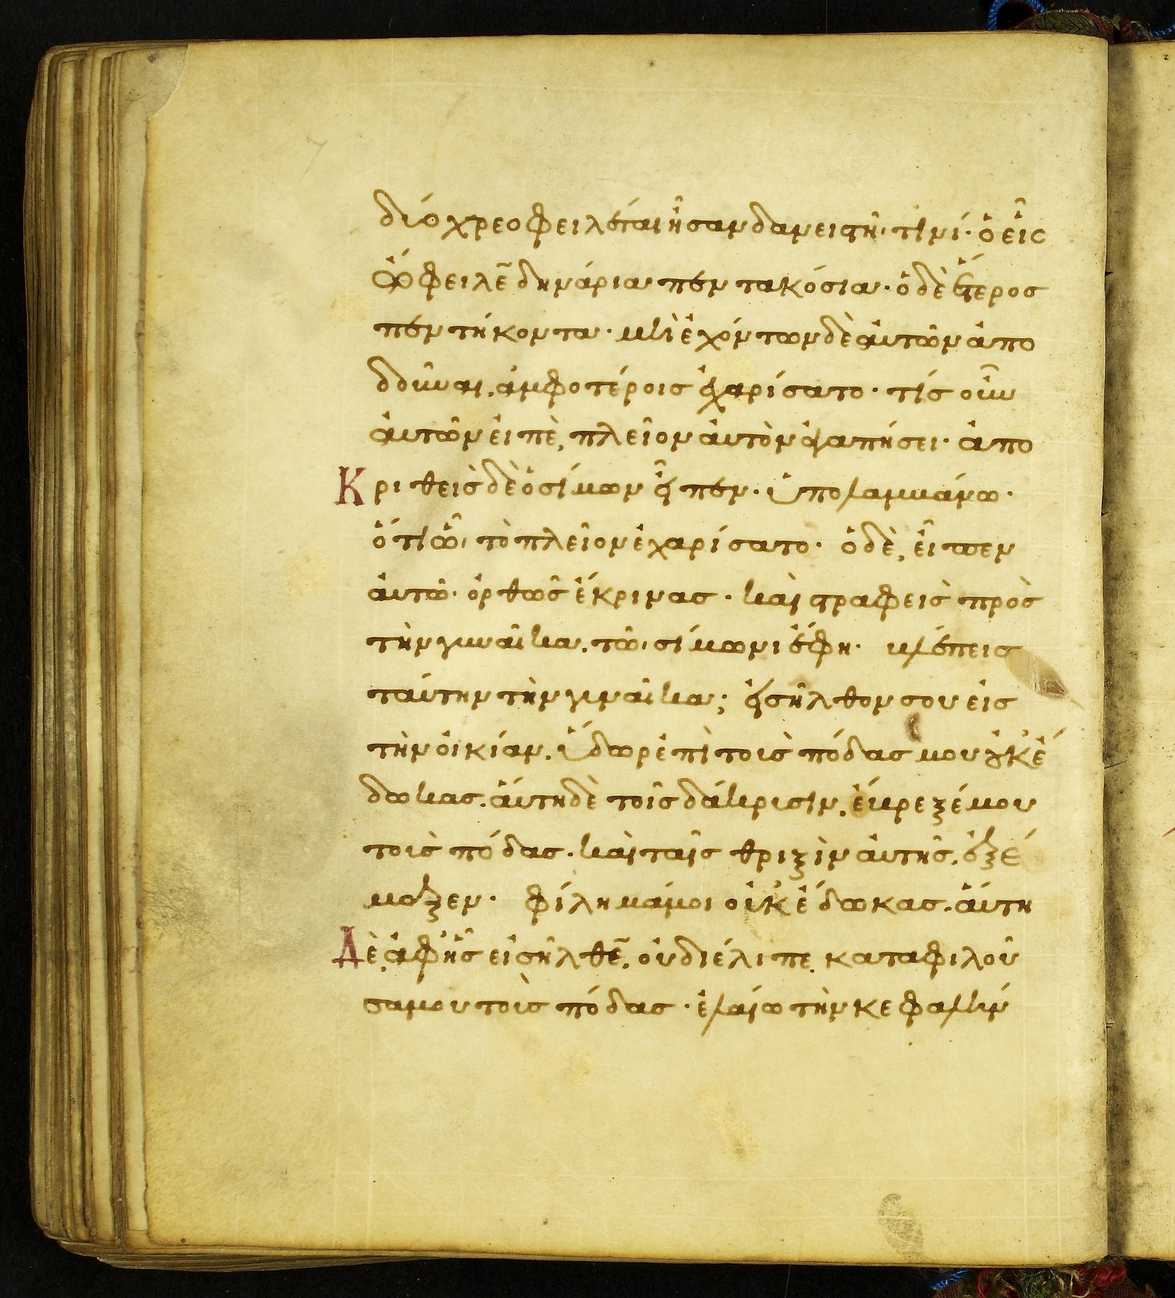 δύο χρεοφειλέται ἦσαν δανειστῆ· τινί· ὁ εἷς
ὤφειλε δηνάρια πεντακόσια· ὁ δὲ ἕτερος
πεντήκοντα· μὴ ἐχόντων δὲ ἀυτῶν ἀπο
δοῦναι, ἀμφοτέροις ἐχαρίσατο· τίς οὖν
ἀυτῶν ἐιπὲ, πλεῖον ἀυτὸν ἀγαπήσει· ἀπο
Κριθεὶς δὲ ὁ σίμων εἶπεν· ὑπολαμβάνω·
ὅτι ὧ, τὸ πλεῖον ἐχαρίσατο· ὁ δὲ, εἶπεν
ἀυτῶ· ὀρθῶς ἔκρινας· καὶ στραφεὶς πρὸς
τὴν γυναῖκα, τῶ, σίμωνι ἔφη· βλέπεις
ταύτην τὴν γυναῖκα; ἐισῆλθον σου εἰς
τὴν ὀικίαν, ὕδωρ ἐπὶ τοὺς πόδας μου ουκ ἔ
δωκας. ἅυτη δὲ τοῖς δάκρυσιν, ἔβρεξέ μου
τοὺς πόδας· καὶ ταῖς θριξὶν ἀυτῆς, ἐξέ
μαξεν· φίλημά μοι οὐκ ἔδωκας. ἅυτη
Δὲ, ἀφ' ἧς εἰσῆλθε, οὐ διέλιπε, καταφιλοῦ
σα μου τοὺς πόδας· ἐλαίω τὴν κεφαλήν